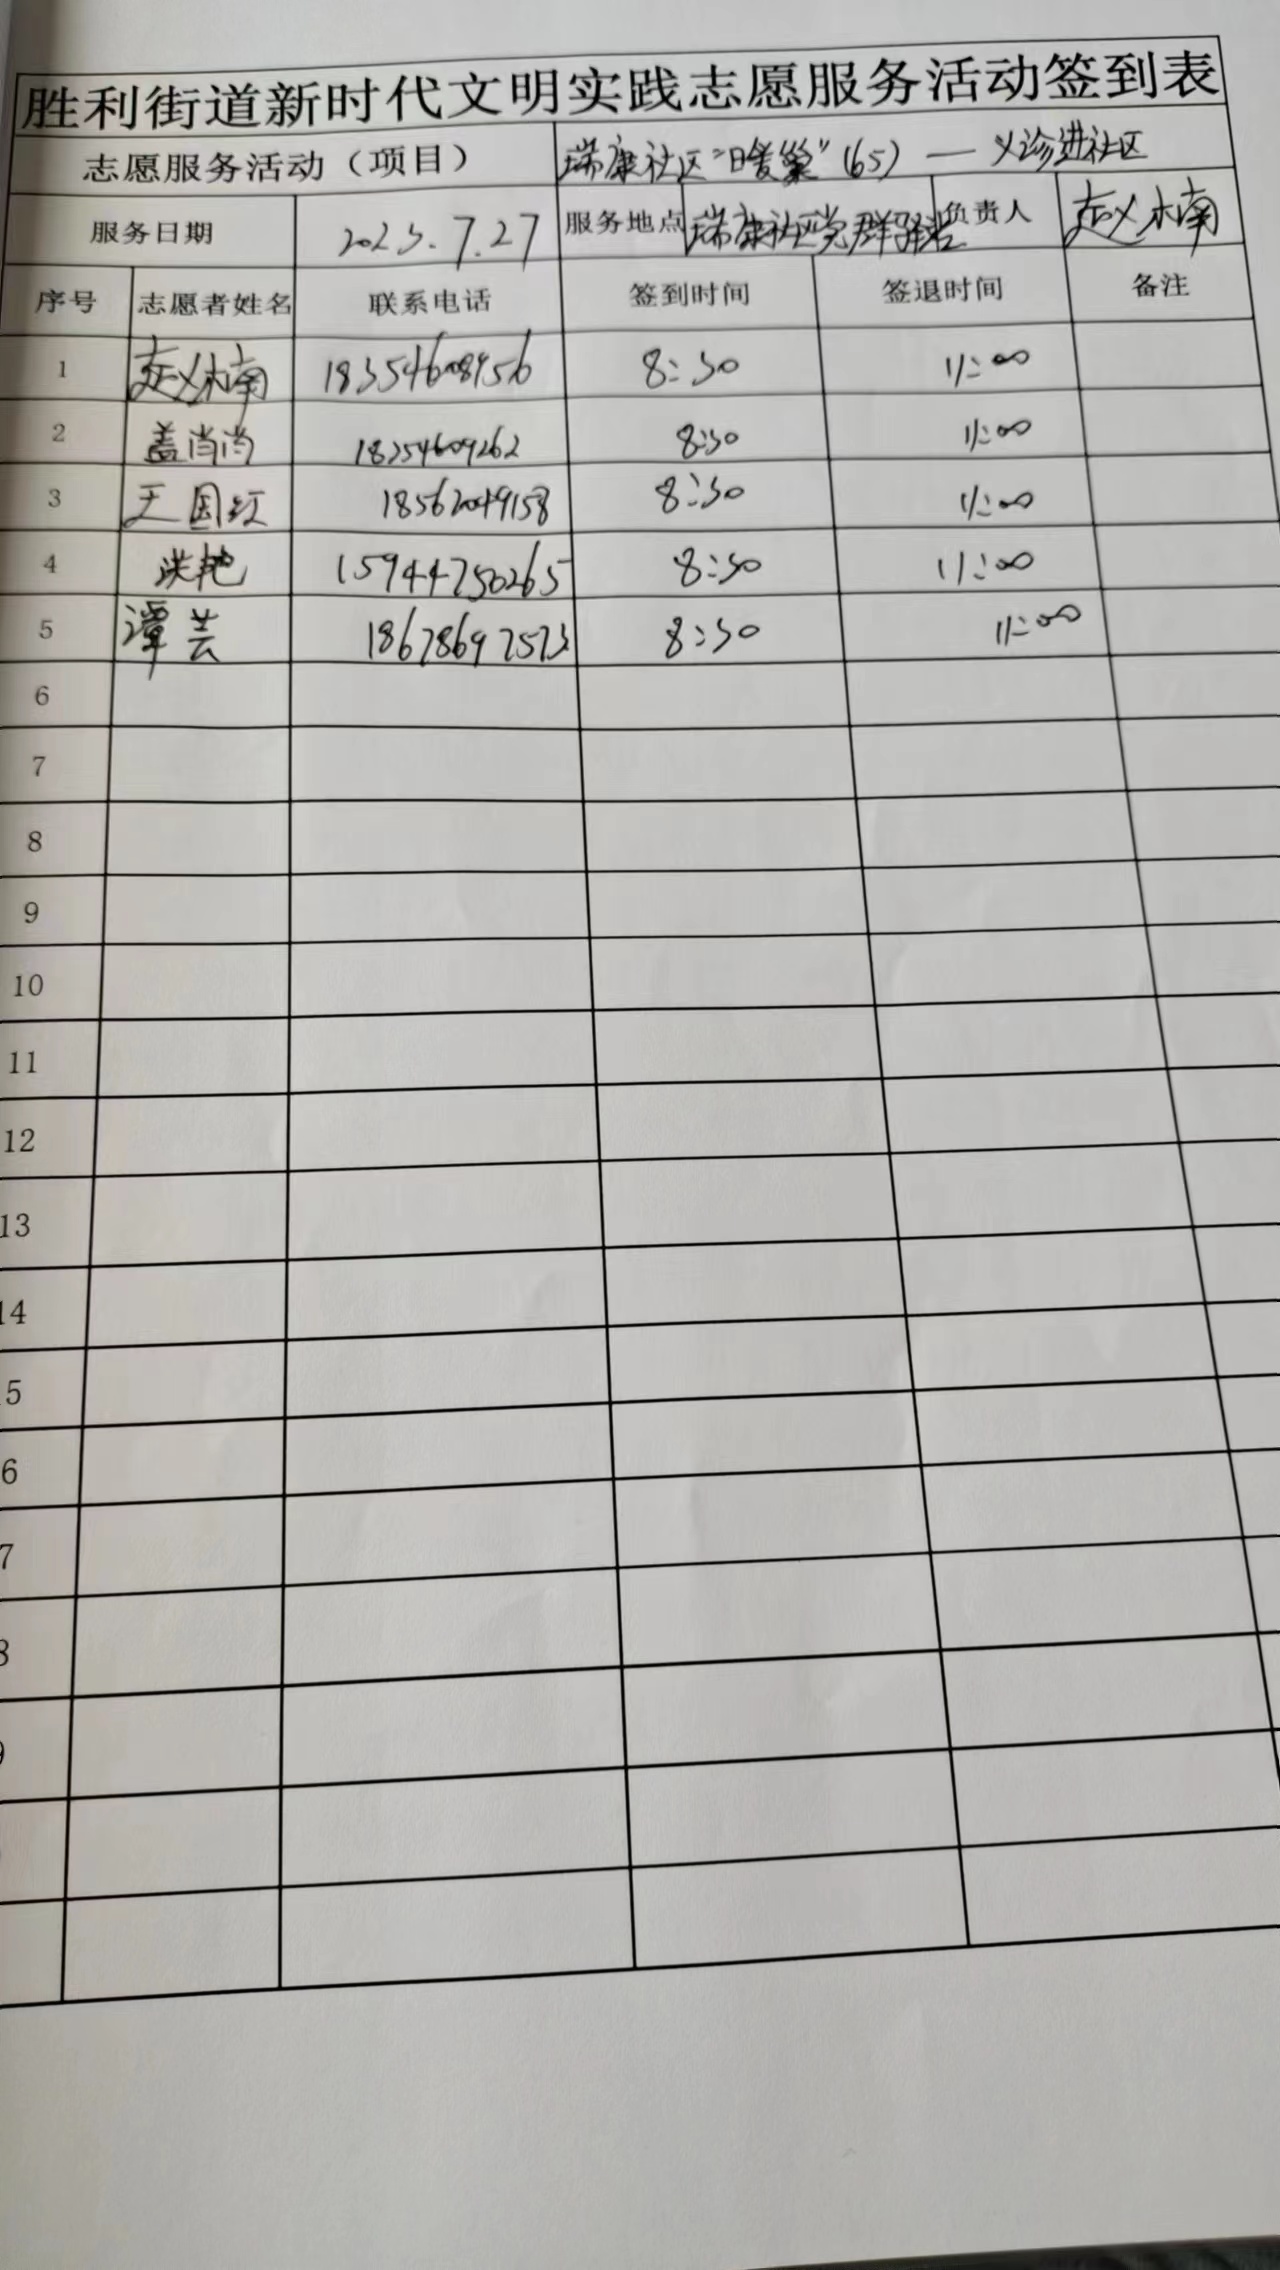 胜利街道新时代文明实践志愿服务活动签到表
志愿服务活动（项目） 瑞康社区“暖巢”(65) — 义诊进社区
服务日期 2023.7.27 服务地点 瑞康社区党群驿站 负责人 赵木南
序号 志愿者姓名 联系电话 签到时间 签退时间 备注
1 赵木南 18354608956 8:30 11:00
2 盖肖肖 18254609262 8:30 11:00
3 王国红 18562049158 8:30 11:00
4 洪艳 15944750265 8:30 11:00
5 谭芸 18678697573 8:30 11:00
6
7
8
9
10
11
12
13
14
5
6
7
8
9